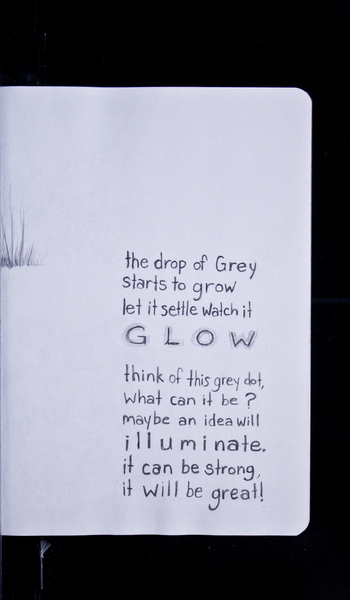 the drop of Grey
starts to grow
let it settle watch it
GLOW
think of this grey dot,
What can it be?
maybe an idea will
illuminate.
it can be strong,
it will be great!